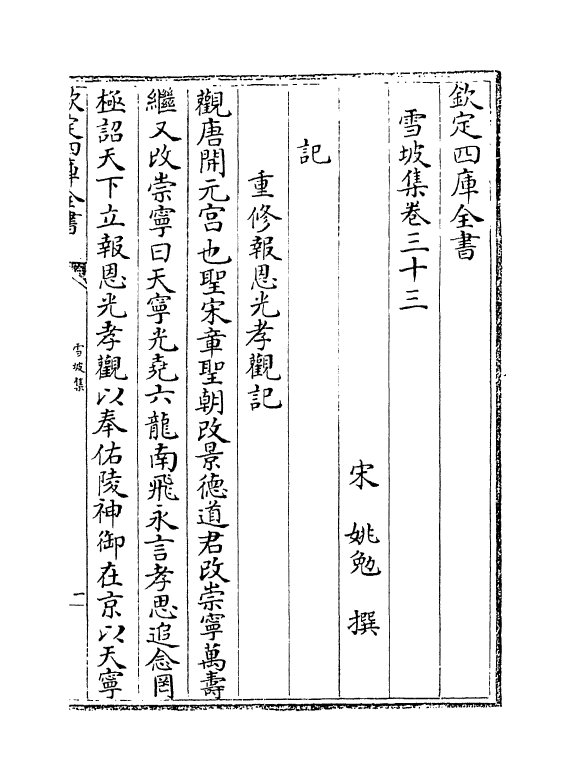 欽定四庫全書
雪坡集卷三十三
宋 姚勉 撰
記
重修報恩光孝觀記
觀唐開元宫也聖宋章聖朝改景德道君改崇寧萬壽
繼又改崇寧曰天寧光堯六龍南飛永言孝思追念罔
極詔天下立報恩光孝觀以奉佑陵神御在京以天寧
欽定四庫全書
雪坡集